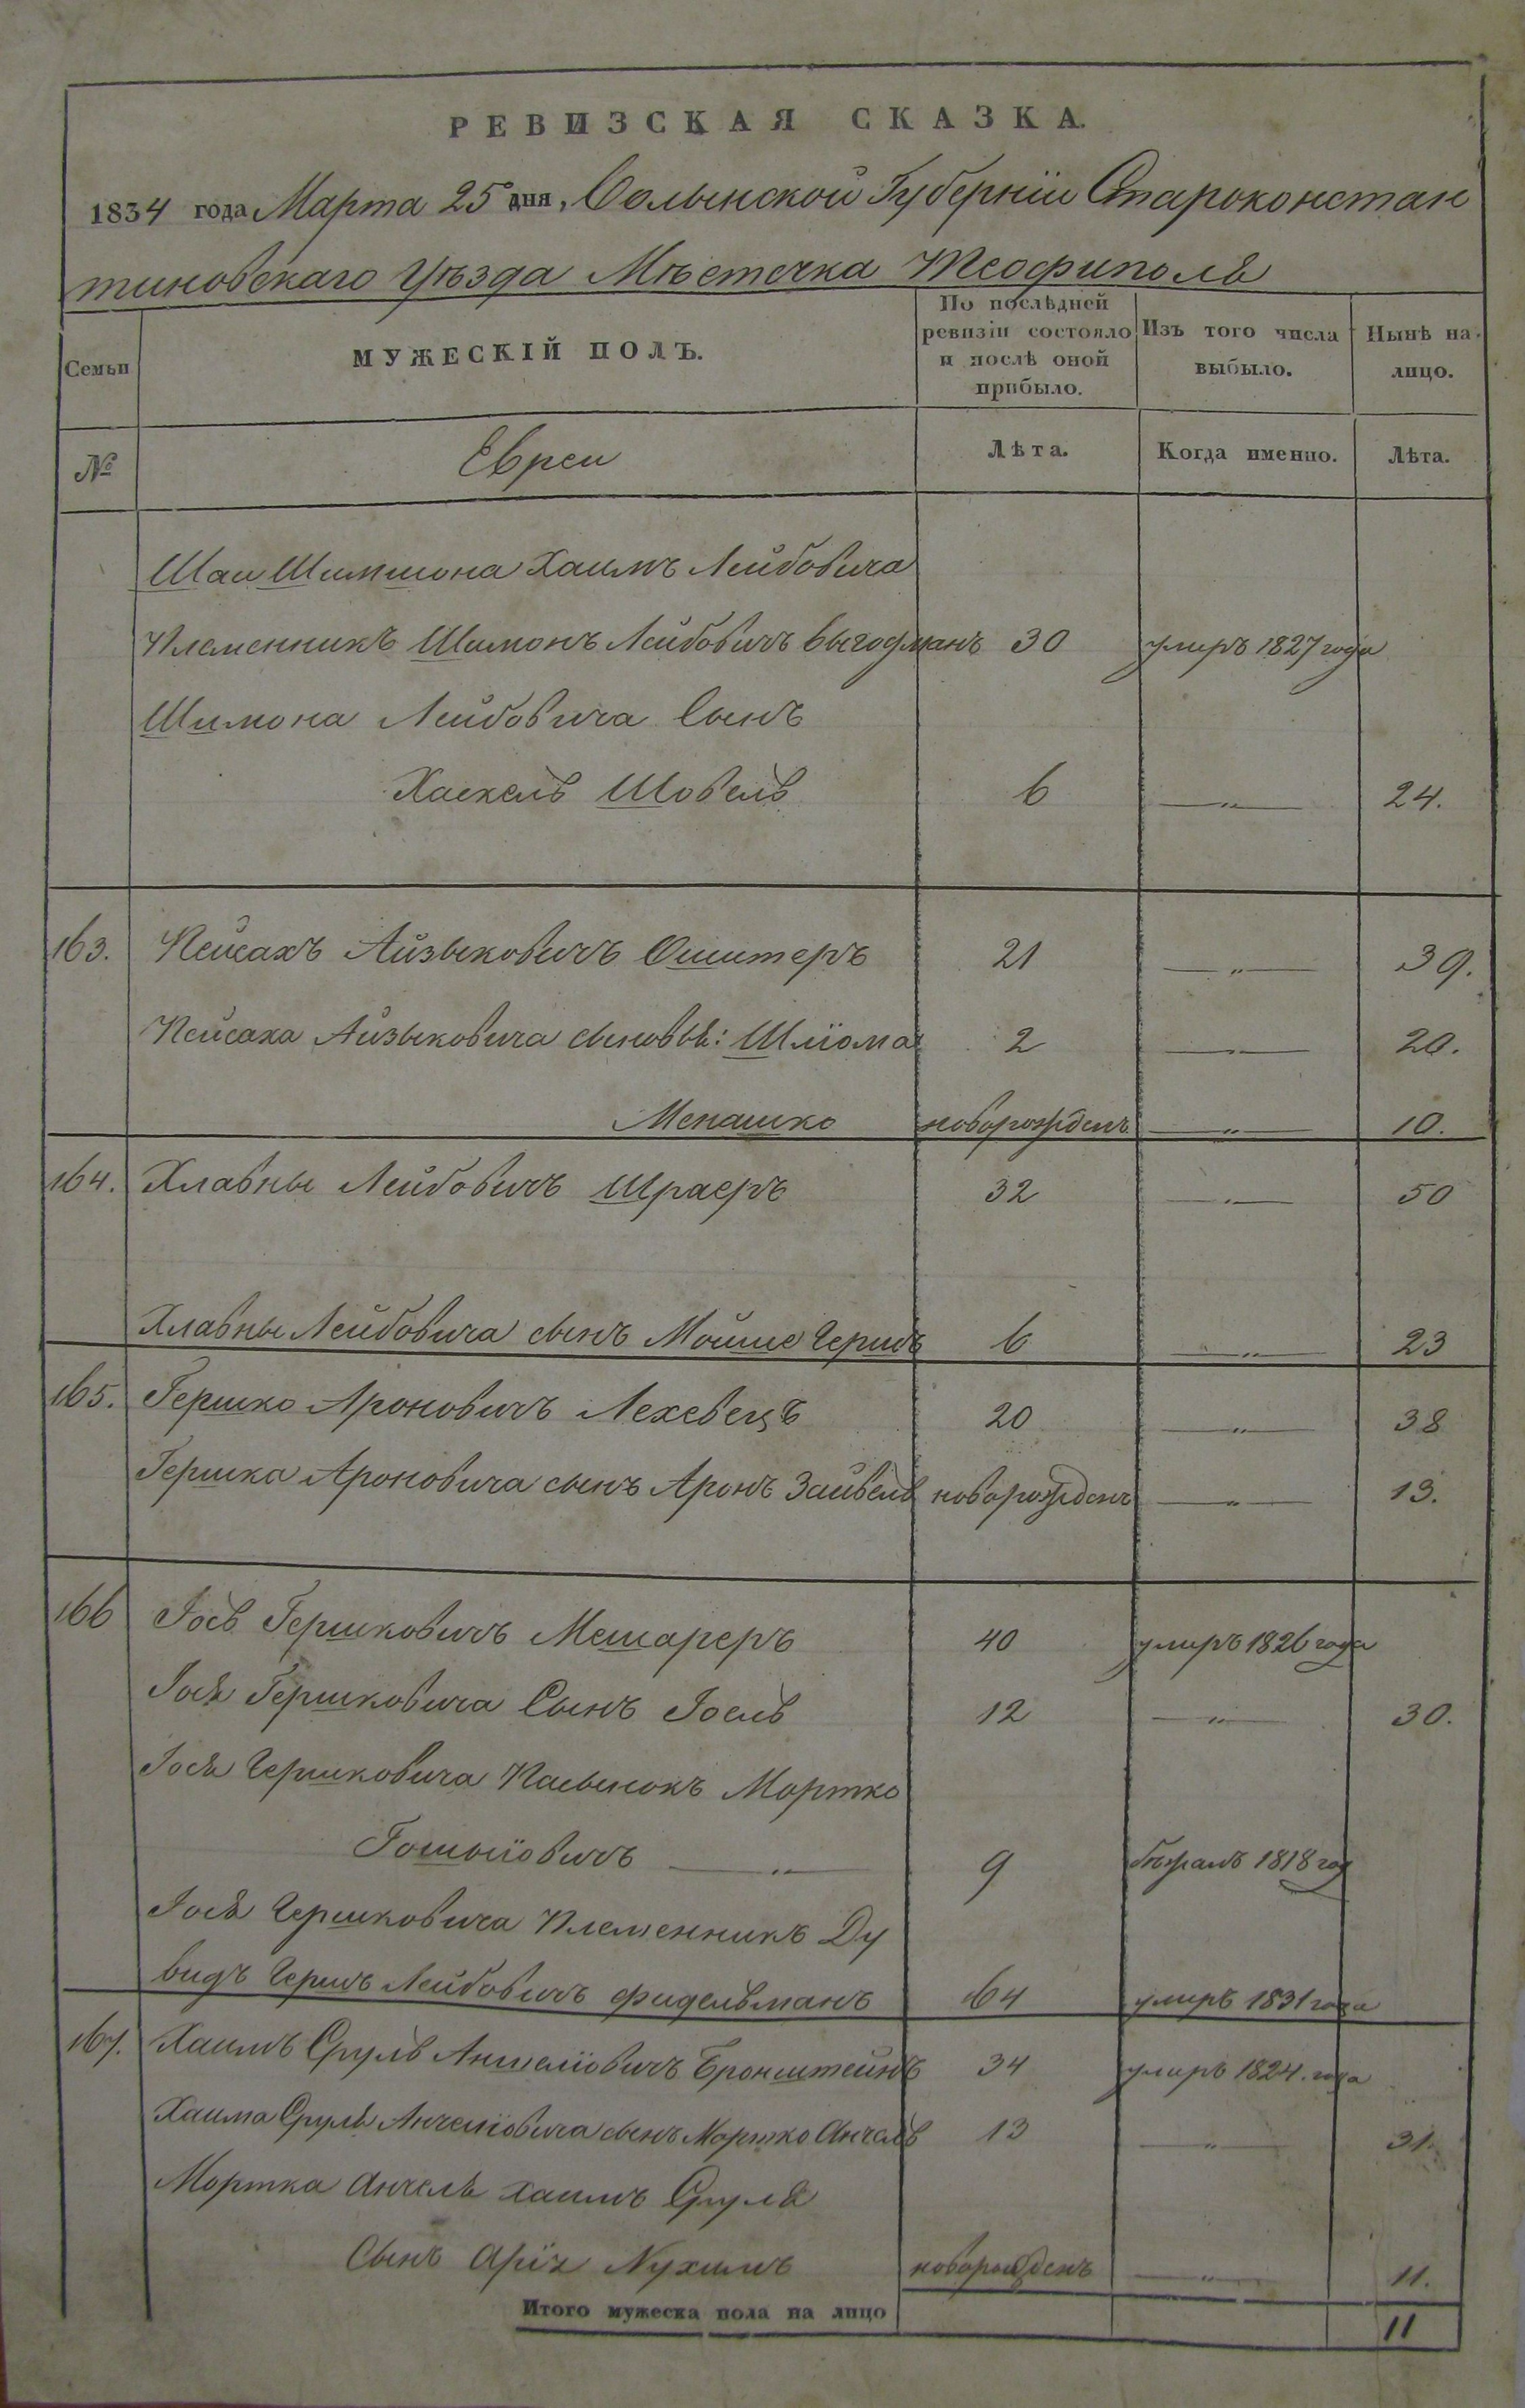 РЕВИЗСКАЯ СКАЗКА.
1834 года Марта 25 дня, Волынской Губерніи Староконстан
тиновскаго Уѣзда Мѣстечка Теофиполя
Семьи
МУЖЕСКІЙ ПОЛЪ.
По послѣдней ревизіи состояло и послѣ оной прибыло.
Изъ того числа выбыло.
Нынѣ на-лицо.
№
Евреи
Лѣта.
Когда именно.
Лѣта.
Шаи Шимшона Хаимъ Лейбовича
Племенникъ Шимонъ Лейбовичъ Выгодманъ 30 умиръ 1827 года
Шимона Лейбовича Сынъ
Хаскель Шовель 6 —„— 24.
163. Пейсахъ Айзыковичъ Ошитеръ 21 —„— 39.
Пейсаха Айзыковича сыновья: Шліома 2 —„— 20.
Менашко новорожденъ —„— 10.
164. Хлавны Лейбовичъ Шраеръ 32 —„— 50
Хлавны Лейбовича сынъ Мойше Гершъ 6 —„— 23
165. Гершко Ароновичъ Лехевецъ 20 —„— 38
Гершка Ароновича сынъ Аронъ Зайвель новорожденъ —„— 13.
166 Іось Гершковичъ Мешареръ 40 умиръ 1826 года
Іося Гершковича Сынъ Іоель 12 —„— 30.
Іося Гершковича Пасынокъ Мортко
—„— 9 бѣжалъ 1818 год
Іося Гершковича Племенникъ Ду
видъ Гершъ Лейбовичъ Фидельманъ 64 умиръ 1831 года
167. Хаимъ Сруль Аншеліовичъ Бронштейнъ 34 умиръ 1824. года
Хаима Сруля Анчеліовича сынъ Мортко Анчель 13 —„— 31.
Мортка Анчеля Хаимъ Сруля
Сынъ Аріх Нухимъ новорожденъ —„— 11.
Итого мужеска пола на лицо 11